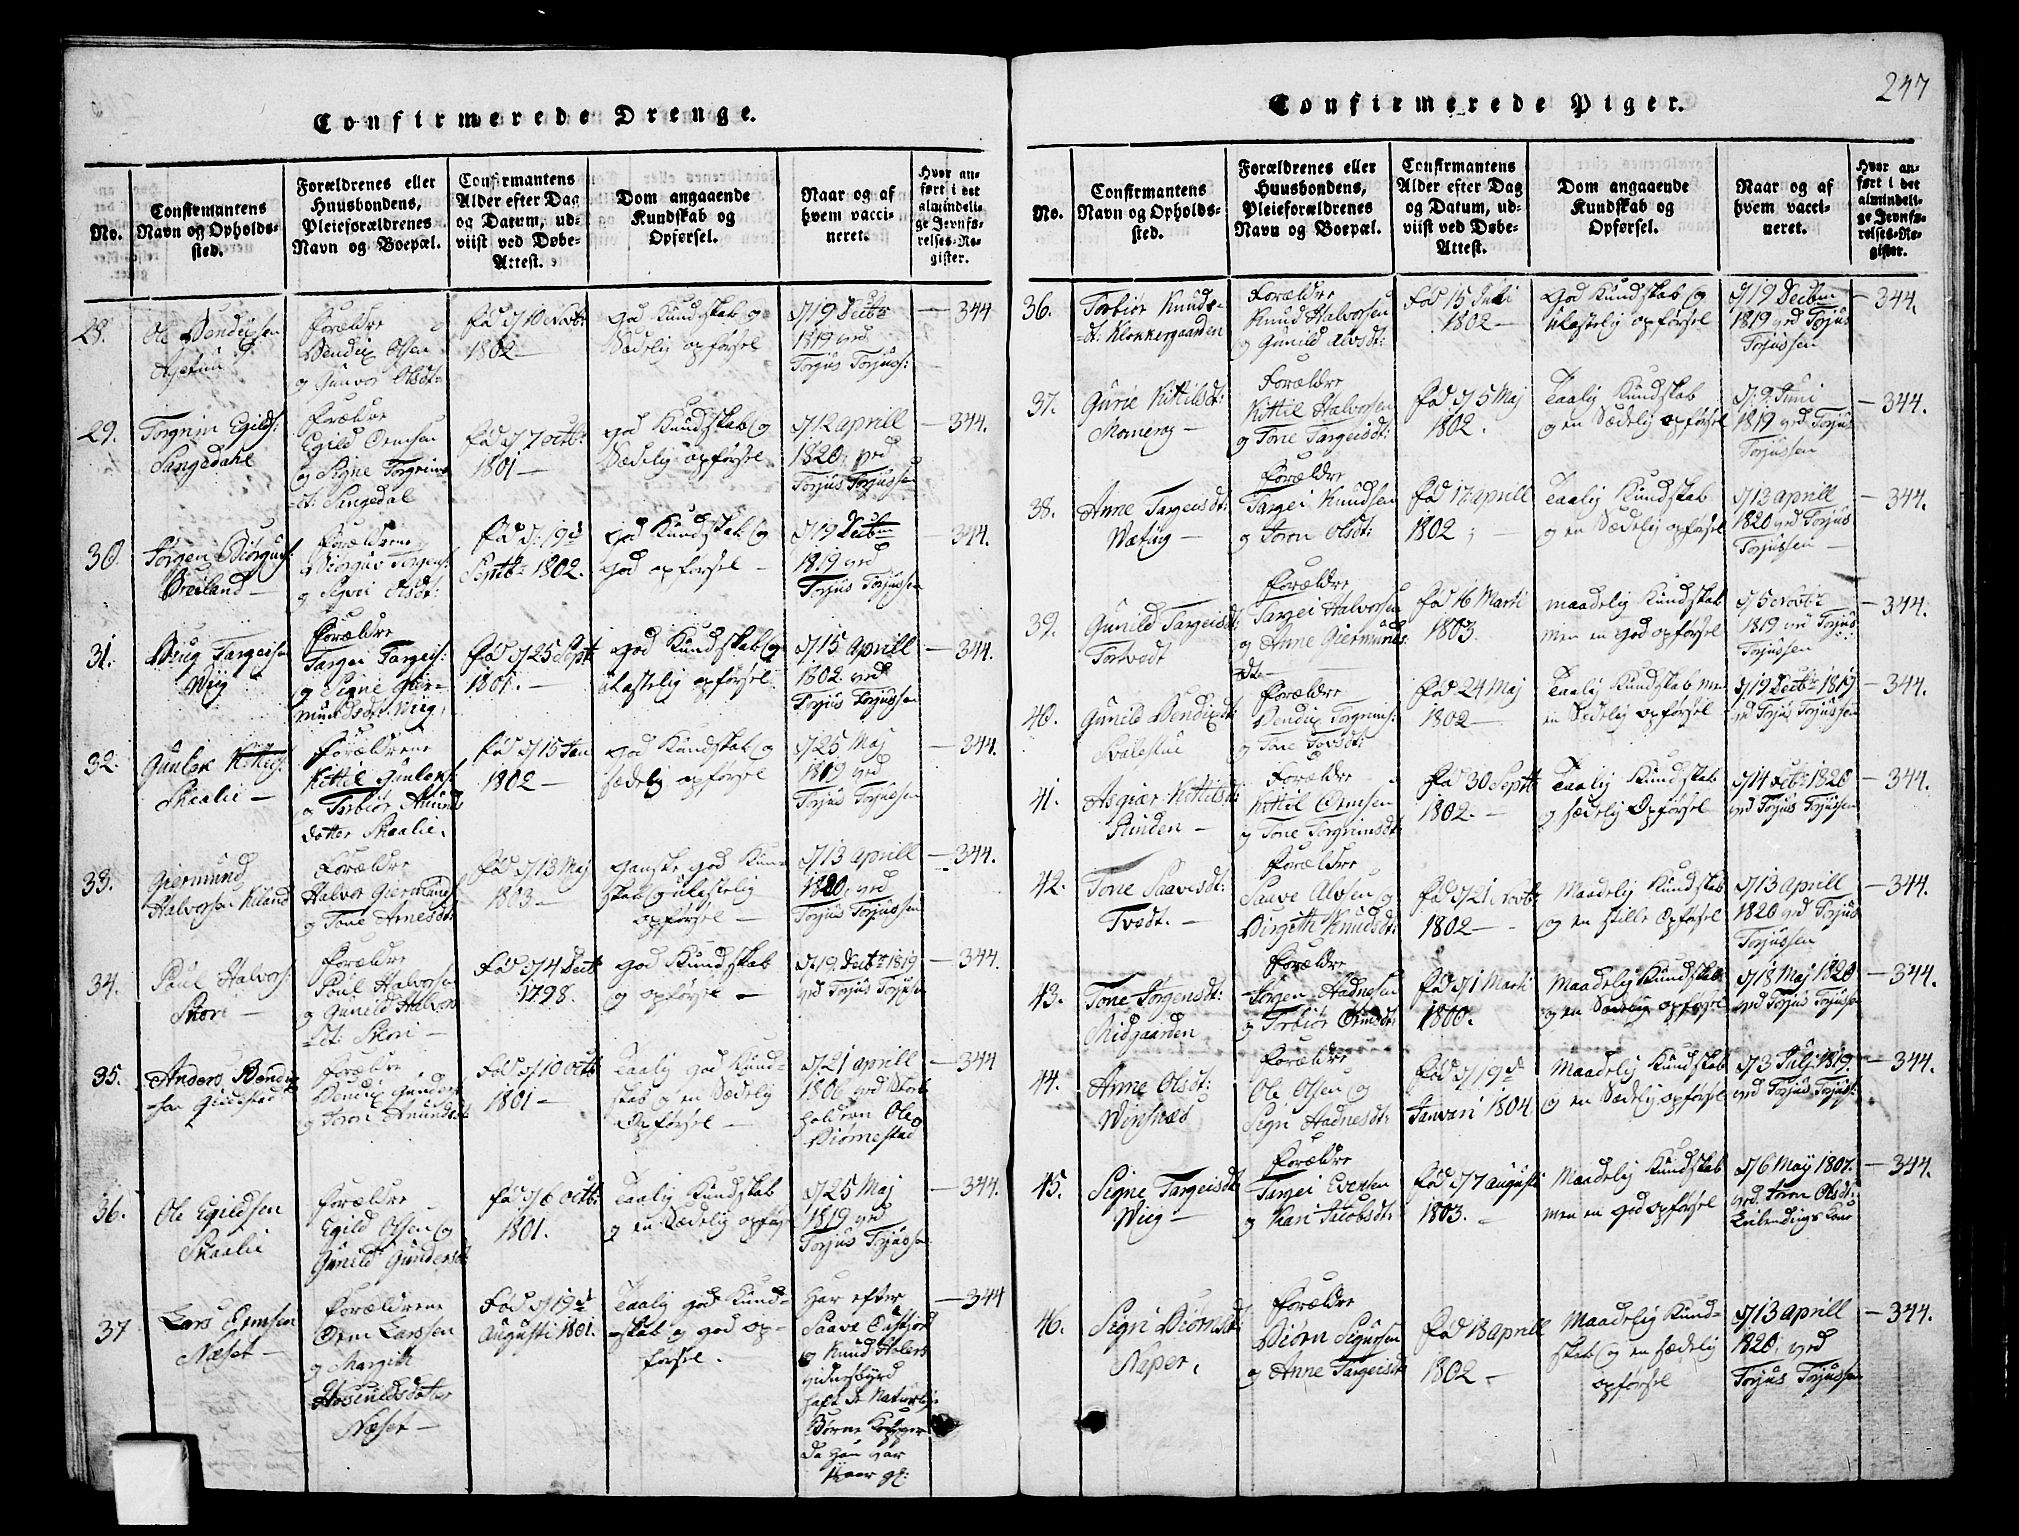 247
Confirmerede Drenge.
No.
Confirmantens
Navn og Opholds-
sted.
Forældrenes eller
Huusbondens,
Pleieforældrenes
Navn og Boepæl.
Confirmantens
Alder efter Dag
og Datum, ud-
viist ved Døbe-
Attest.
Dom angaaende
Kundskab og
Opførsel.
Naar og af
hvem vacci-
neret.
Hvor an-
ført i det
almindeli-
ge Jevnfø-
relses-Re-
gister.
28.
Ole Bendixsen
Forældre
Bendix Olsen
og Gunvor Olsdt:
fød d/10 Novbr:
1802 —
god Kundskab og
Sædelig opførsel
d/19 Decbr
1819 ved
Torjus Torjuss:
— 344
29.
Torgrim Egilds:
Sangedahl
Forældre
Egild Ormsen
og Signe Torgrims
dt: Sangedal
fød d/7 octbr:
1801 —
god Kundskab og
Sædelig opførsel
d/12 aprill
1820, ved
Torjus Torjussen
— 344.
30.
Jørgen Biørgus:
Breiland —
Forældrene
Biørguv Jørgens:
og Sigvei Olsdt:
fød d: 19d
Septbr 1802.
god Kundskab og
god opførsel —
d/19 Decbr
1819 ved
Torjus Torjussen
344.
31.
Targeisen
Wiig
Forældre
Targei Targeis:
og Signe Gier-
mundsdt: Wiig,
fød d/25 Sept
1801. —
god Kundskab og
ulastelig opførsel
d/15 Aprill
1802 ved
Torjus Torjussen
— 344.
32.
Gunlek Kittils:
Skaalie —
Forældrene
Kittil Gunleks:
og Torbiør Amunds
datter Skaalie.
fød d/15 Jan
1802 —
god Kundskab og
sedelig opførsel
d/25 Maj
1819 ved
Torjus Torjussen
— 344.
33.
Giermund
Halvorsen Kiland
Forældre
Halvor Giermunds
og Tone Arnesdt:
fød d/13 Maj
1803 —
ganske god Kund-
skab og ulastelig
opførsel —
d/13 aprill
1820, ved
Torjus Torjussen
— 344.
34.
Paul Halvors:
Skori —
Forældre
Poul Halvorsen
og Gunild Halvors
dt: Skori —
Fød d/4 Decbr
1798.
god Kundskab
og opførsel —
d/19. Decbr: 1819
ved Torjus Torjussen
— 344.
35.
Anders Bendix
sen
Forældre
Bendix Gunders:
og Joron Amundsdt
Fød d/10 octb
1801 —
Taalig god Kund-
skab og en Sædelig
Opførsel —
d/21 aprill
1806 ved Skole-
holderen Ole
Biørnestad
— 344
36.
Ole Egildsen
Skaalie
Forældre
Egild Olsen og
Gunild Gundersdt
fød d/6 octb:
1801.
Taalig Kundskab
og en Sædelig opførs
d/25 Maj
1819 ved
Torjus Torjussen
— 344.
37
Lars Ormsen
Næset —
Forældrene
Orm Larssen
og Margith
Næset —
Fød d/19d
Augusti 1801.
Taalig god Kund-
skab og god op-
førsel.
Har efter
Saave
og Knud
vidnesbyrd
haft de Naturlig:
Børne Kopper
da han var
aar gl:
— 344
Confirmerede Piger.
No.
Confirmantens
Navn og Opholds-
sted.
Forældrenes eller
Huusbondens,
Pleieforældrenes
Navn og Boepæl.
Confirmantens
Alder efter Dag
og Datum, ud-
viist ved Døbe-
Attest.
Dom angaaende
Kundskab og
Opførsel.
Naar og af
hvem vacci-
neret.
Hvor an-
ført i det
almindeli-
ge Jevnfø-
relses-Re-
gister.
36.
Torbiør Knuds-
dt: Klokkergaarden
Forældre
Knud Halvorsen
og Gunild Alvsdt:
Fød 15 Juli
1802 —
God Kundskab og
Ulastelig opførsel
d/19 Decbr
1819 ved Torjus
Torjussen
— 344.
37.
Gurie Kittilsdt:
Momrag —
Forældre
Kittil Halvorsen
og Tone Targeisdt:
fød d/5 Maj
1802.
Taalig Kundskab
og en Sædelig opførsel
d: 9 Juni
1819 ved Torjus
Torjussen
— 344.
38.
Anne Targeisdt:
Forældre
Targei Knudsen
og Joron Olsdt:
fød 17 aprill
1802; —
Taalig Kundskab
og en Sædelig opførsel
d/13 aprill
1820 ved Torjus
Torjussen —
— 344.
39.
Gunild Targeisdt
Tortvedt
Forældre
Targei Halvorsen
og Anne Giermunds
dtr —
fød 16 Marti
1803.
maadelig Kundskab
men en god opførsel
d/5 Novbr
1819 ved Torjus
Torjussen
— 344.
40.
Gunild Bendixdt:
Svalestue
Forældre
Bendix Torgrims:
og Tone Tovsdt:
fød 24 Maj
1802 —
Taalig Kundskab men
en Sædelig opførsel
d/19 Decbr 1819
ved Torjus Torjussen
— 344.
41.
Asgiær Kittilsdt:
Rinden —
Forældre
Kittil Ormsen
og Tone Torgrimsdt:
fød 30 Septb
1802. —
Taalig Kundskab
og sædelig Opførsel
d/14 Octbr 1820
ved Torjus Torjussen
— 344.
42.
Tone Saavesdt:
Tvedt. —
Forældre
Saave Alvsen og
Birgithe Knudsdt:
fød d/21 Novb:
1802 —
Maadelig Kundskab
og en stille Opførsel
d/13 aprill
1820 ved Torjus
Torjussen
— 344.
43.
Tone Jørgensdt:
Midgaarden
Forældre
Jørgen Hadnesen
og Torbiør Ormsdt:
fød d/1 Marti
1800.
Maadelig Kundskab
og en Sædelig opførsel
d/18 Maj 1820
ved Torjus Torjussen
— 344.
44.
Anne Olsdt:
Winsnæs
Forældre
Ole Olsen og
Segri Hadnesdt:
fød d/19d
Januari 1804
Maadelig Kundskab
og en Sædelig opførsel
d/3 Julj 1819.
ved Torjus Torjuss:
— 344.
45.
Signe Targeisdt
Wiig —
Forældre
Targei Evensen
og Kari Jacobsdt:
fød d/7 augusti
1803. —
Maadelig Kundskab
men en god opførsel
d/6 Maij 1807.
ved Joron Olsdt:
Leilendings Kone
— 344.
46.
Segri Biørnsdt:
Naper,
Forældre
Biørn Sigursen
og Anne Targeisdt
fød 13 aprill
1802 —
Maadelig Kund-
skab og en sædelig
opførsel
d/13 aprill
1820, ved
Torjus Torjussen
— 344.